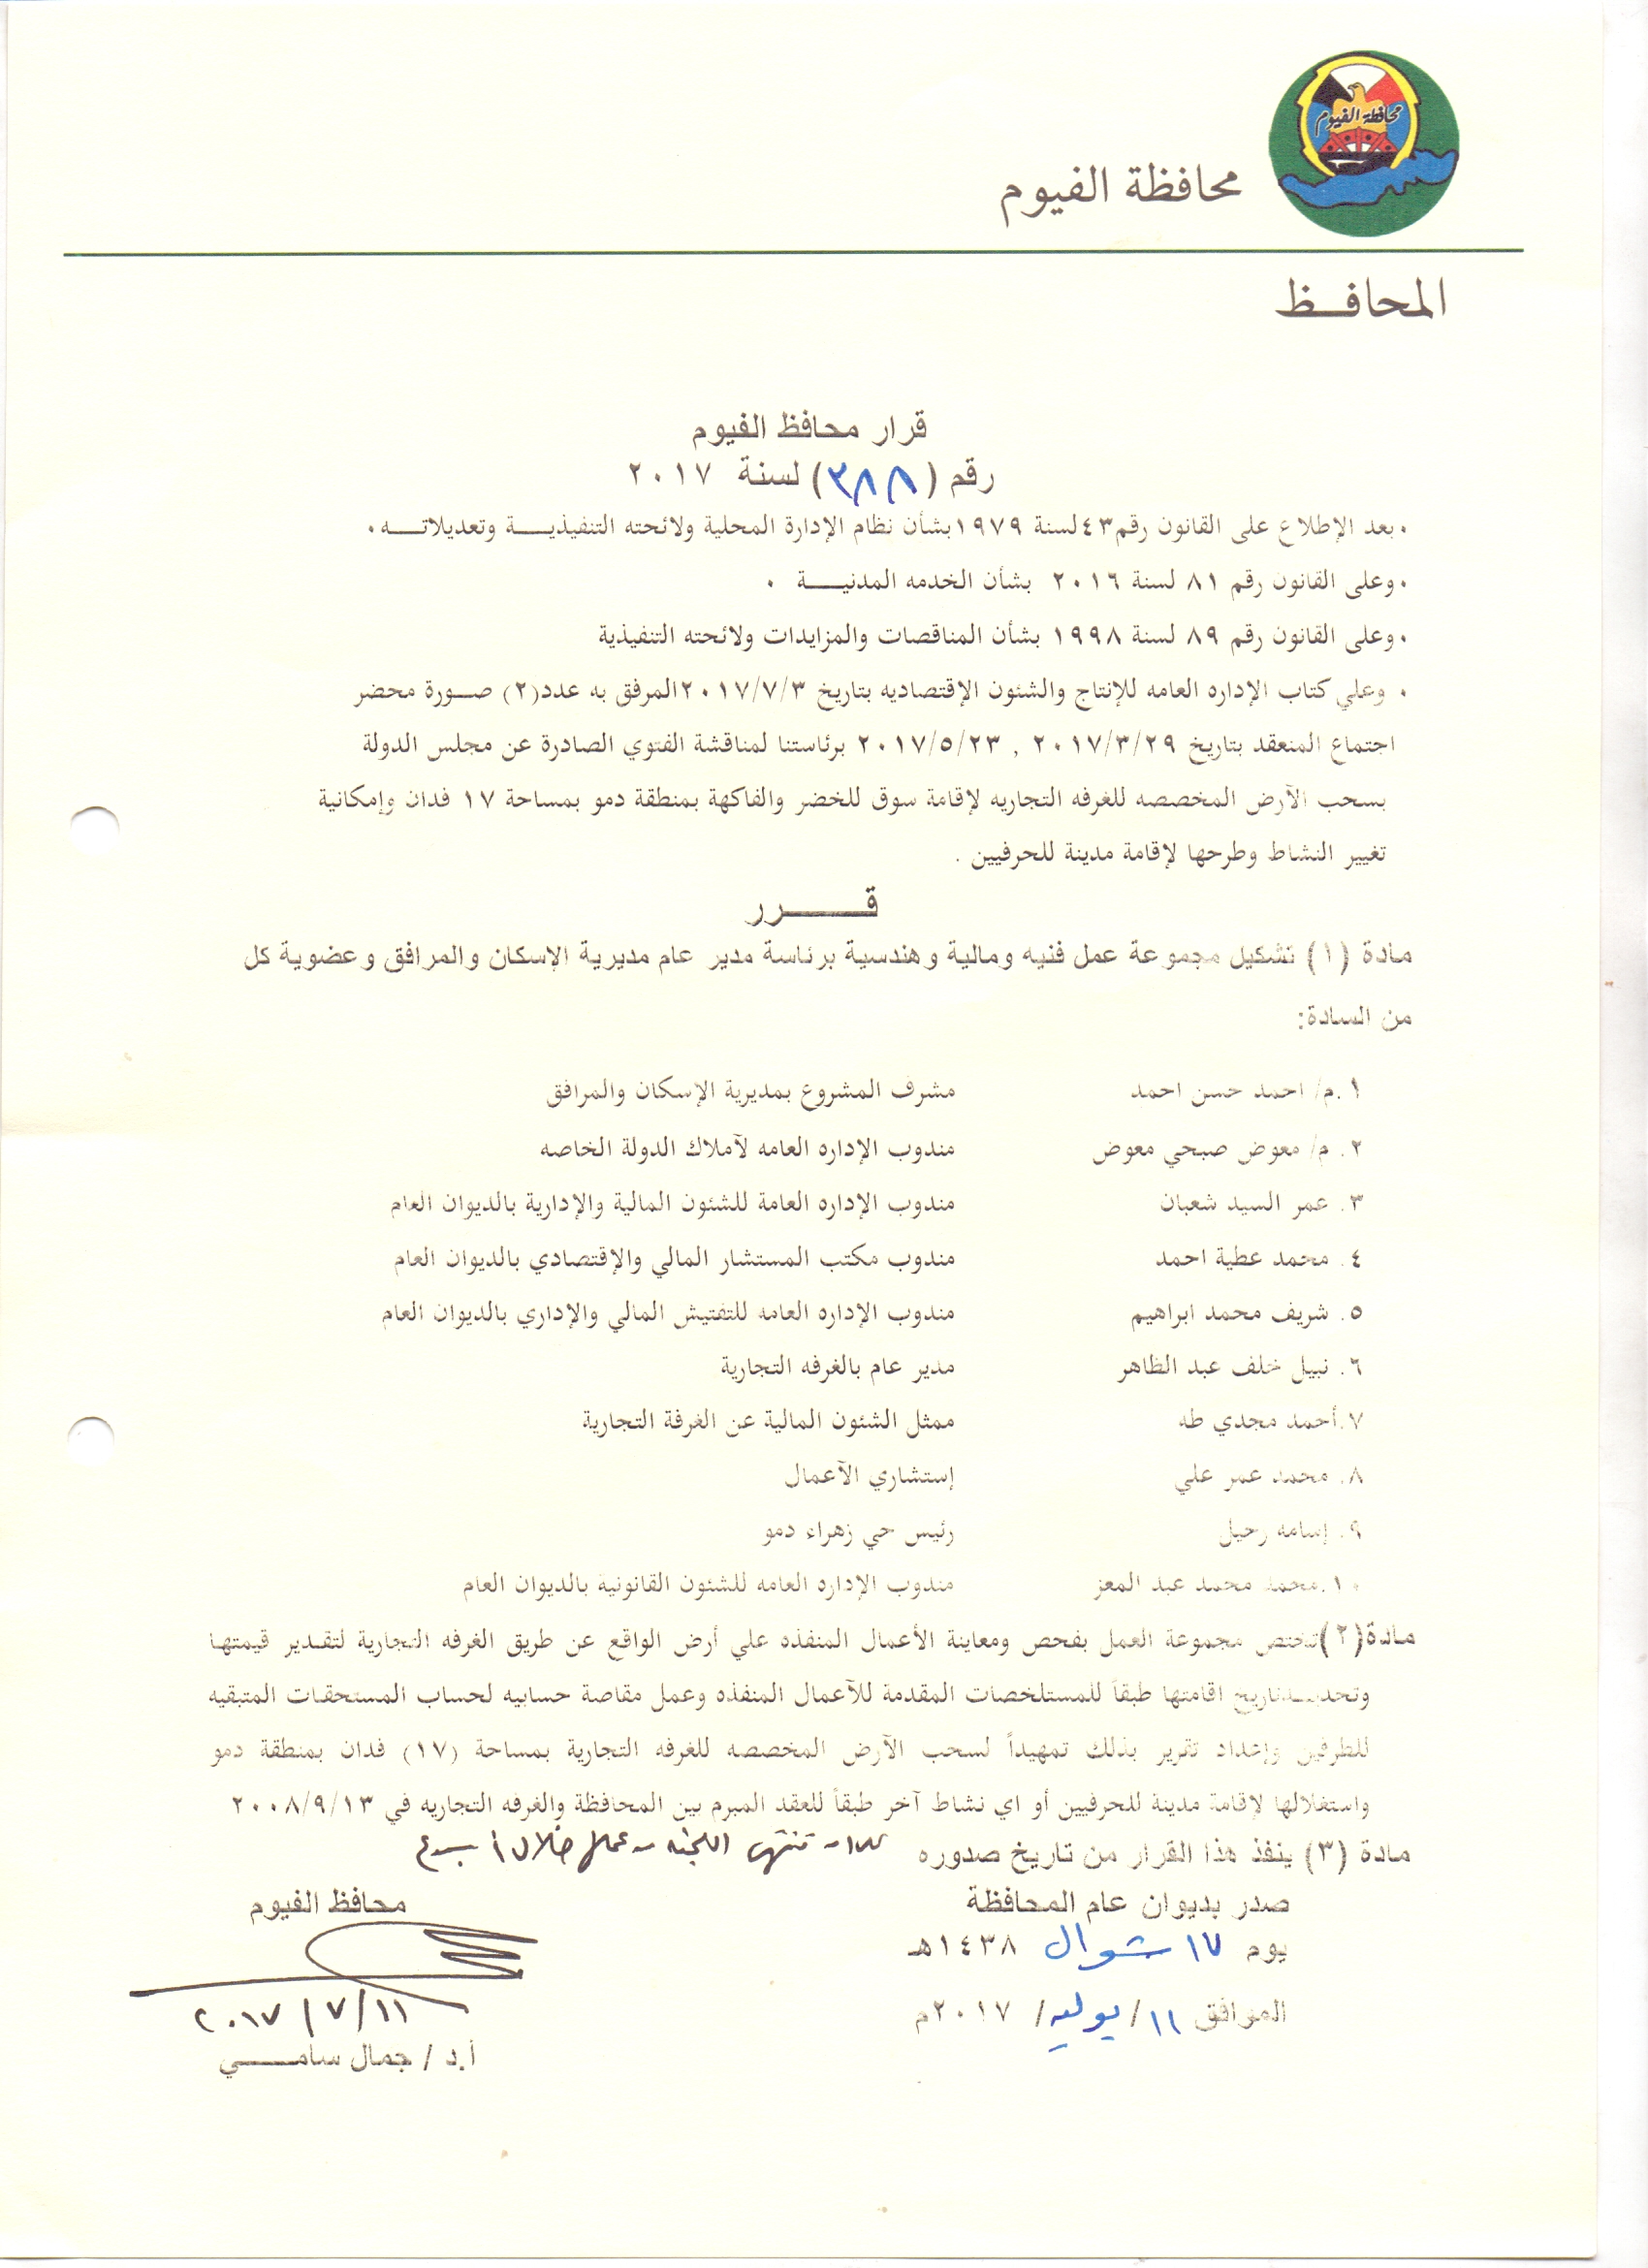 محافظة الفيوم
محافظة الفيوم
المحافـــظ
قرار محافظ الفيوم
رقم (٣٨٨) لسنة ٢٠١٧
٠ بعد الإطلاع على القانون رقم ٤٣ لسنة ١٩٧٩ بشأن نظام الإدارة المحلية ولائحته التنفيذيـــة وتعديلاتـــه ٠
٠ وعلى القانون رقم ٨١ لسنة ٢٠١٦ بشأن الخدمه المدنيـــة ٠
٠ وعلى القانون رقم ٨٩ لسنة ١٩٩٨ بشأن المناقصات والمزايدات ولائحته التنفيذية
٠ وعلي كتاب الإداره العامه للإنتاج والشئون الإقتصاديه بتاريخ ٢٠١٧/٧/٣ المرفق به عدد(٢) صــورة محضر
اجتماع المنعقد بتاريخ ٢٠١٧/٣/٢٩ , ٢٠١٧/٥/٢٣ برئاستنا لمناقشة الفتوي الصادرة عن مجلس الدولة
بسحب الآرض المخصصه للغرفه التجاريه لإقامة سوق للخضر والفاكهة بمنطقة دمو بمساحة ١٧ فدان وإمكانية
تغيير النشاط وطرحها لإقامة مدينة للحرفيين .
قـــــرر
مادة (١) تشكيل مجموعة عمل فنيه ومالية وهندسية برئاسة مدير عام مديرية الإسكان والمرافق وعضوية كل
من السادة:
١.م/ احمد حسن احمد مشرف المشروع بمديرية الإسكان والمرافق
٢. م/ معوض صبحي معوض مندوب الإداره العامه لآملاك الدولة الخاصه
٣. عمر السيد شعبان مندوب الإداره العامة للشئون المالية والإدارية بالديوان العام
٤. محمد عطية احمد مندوب مكتب المستشار المالي والإقتصادي بالديوان العام
٥. شريف محمد ابراهيم مندوب الإداره العامه للتفتيش المالي والإداري بالديوان العام
٦. نبيل خلف عبد الظاهر مدير عام بالغرفه التجارية
٧.أحمد مجدي طه ممثل الشئون المالية عن الغرفة التجارية
٨. محمد عمر علي إستشاري الآعمال
٩. إسامه رحيل رئيس حي زهراء دمو
١٠.محمد محمد عبد المعز مندوب الإداره العامه للشئون القانونية بالديوان العام
مادة(٢)تختص مجموعة العمل بفحص ومعاينة الأعمال المنفذه علي أرض الواقع عن طريق الغرفه التجارية لتقدير قيمتها
وتحديـــدتاريخ اقامتها طبقاً للمستلخصات المقدمة للآعمال المنفذه وعمل مقاصة حسابيه لحساب المستحقات المتبقيه
للطرفين وإعداد تقرير بذلك تمهيداً لسحب الآرض المخصصه للغرفه التجارية بمساحة (١٧) فدان بمنطقة دمو
واستغلالها لإقامة مدينة للحرفيين أو اي نشاط آخر طبقاً للعقد المبرم بين المحافظة والغرفه التجاريه في ٢٠٠٨/٩/١٣
مادة (٣) ينفذ هذا القرار من تاريخ صدوره تنتهى اللجنه من عملها خلال أسبوع
صدر بديوان عام المحافظة محافظ الفيوم
يوم ١٧ شوال ١٤٣٨هـ
الموافق ١١/ يوليه/ ٢٠١٧م ٢٠١٧/٧/١١
أ.د / جمال سامـــــي